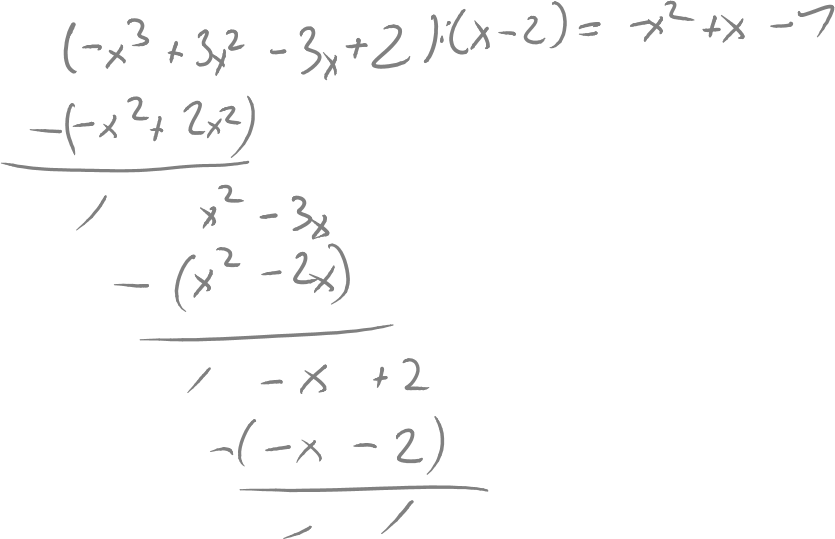 (-x³ + 3x² - 3x + 2):(x - 2) = -x² + x - 1
-(-x² + 2x²)
/ x² - 3x
- (x² - 2x)
/ - x + 2
-(-x - 2)
/ /